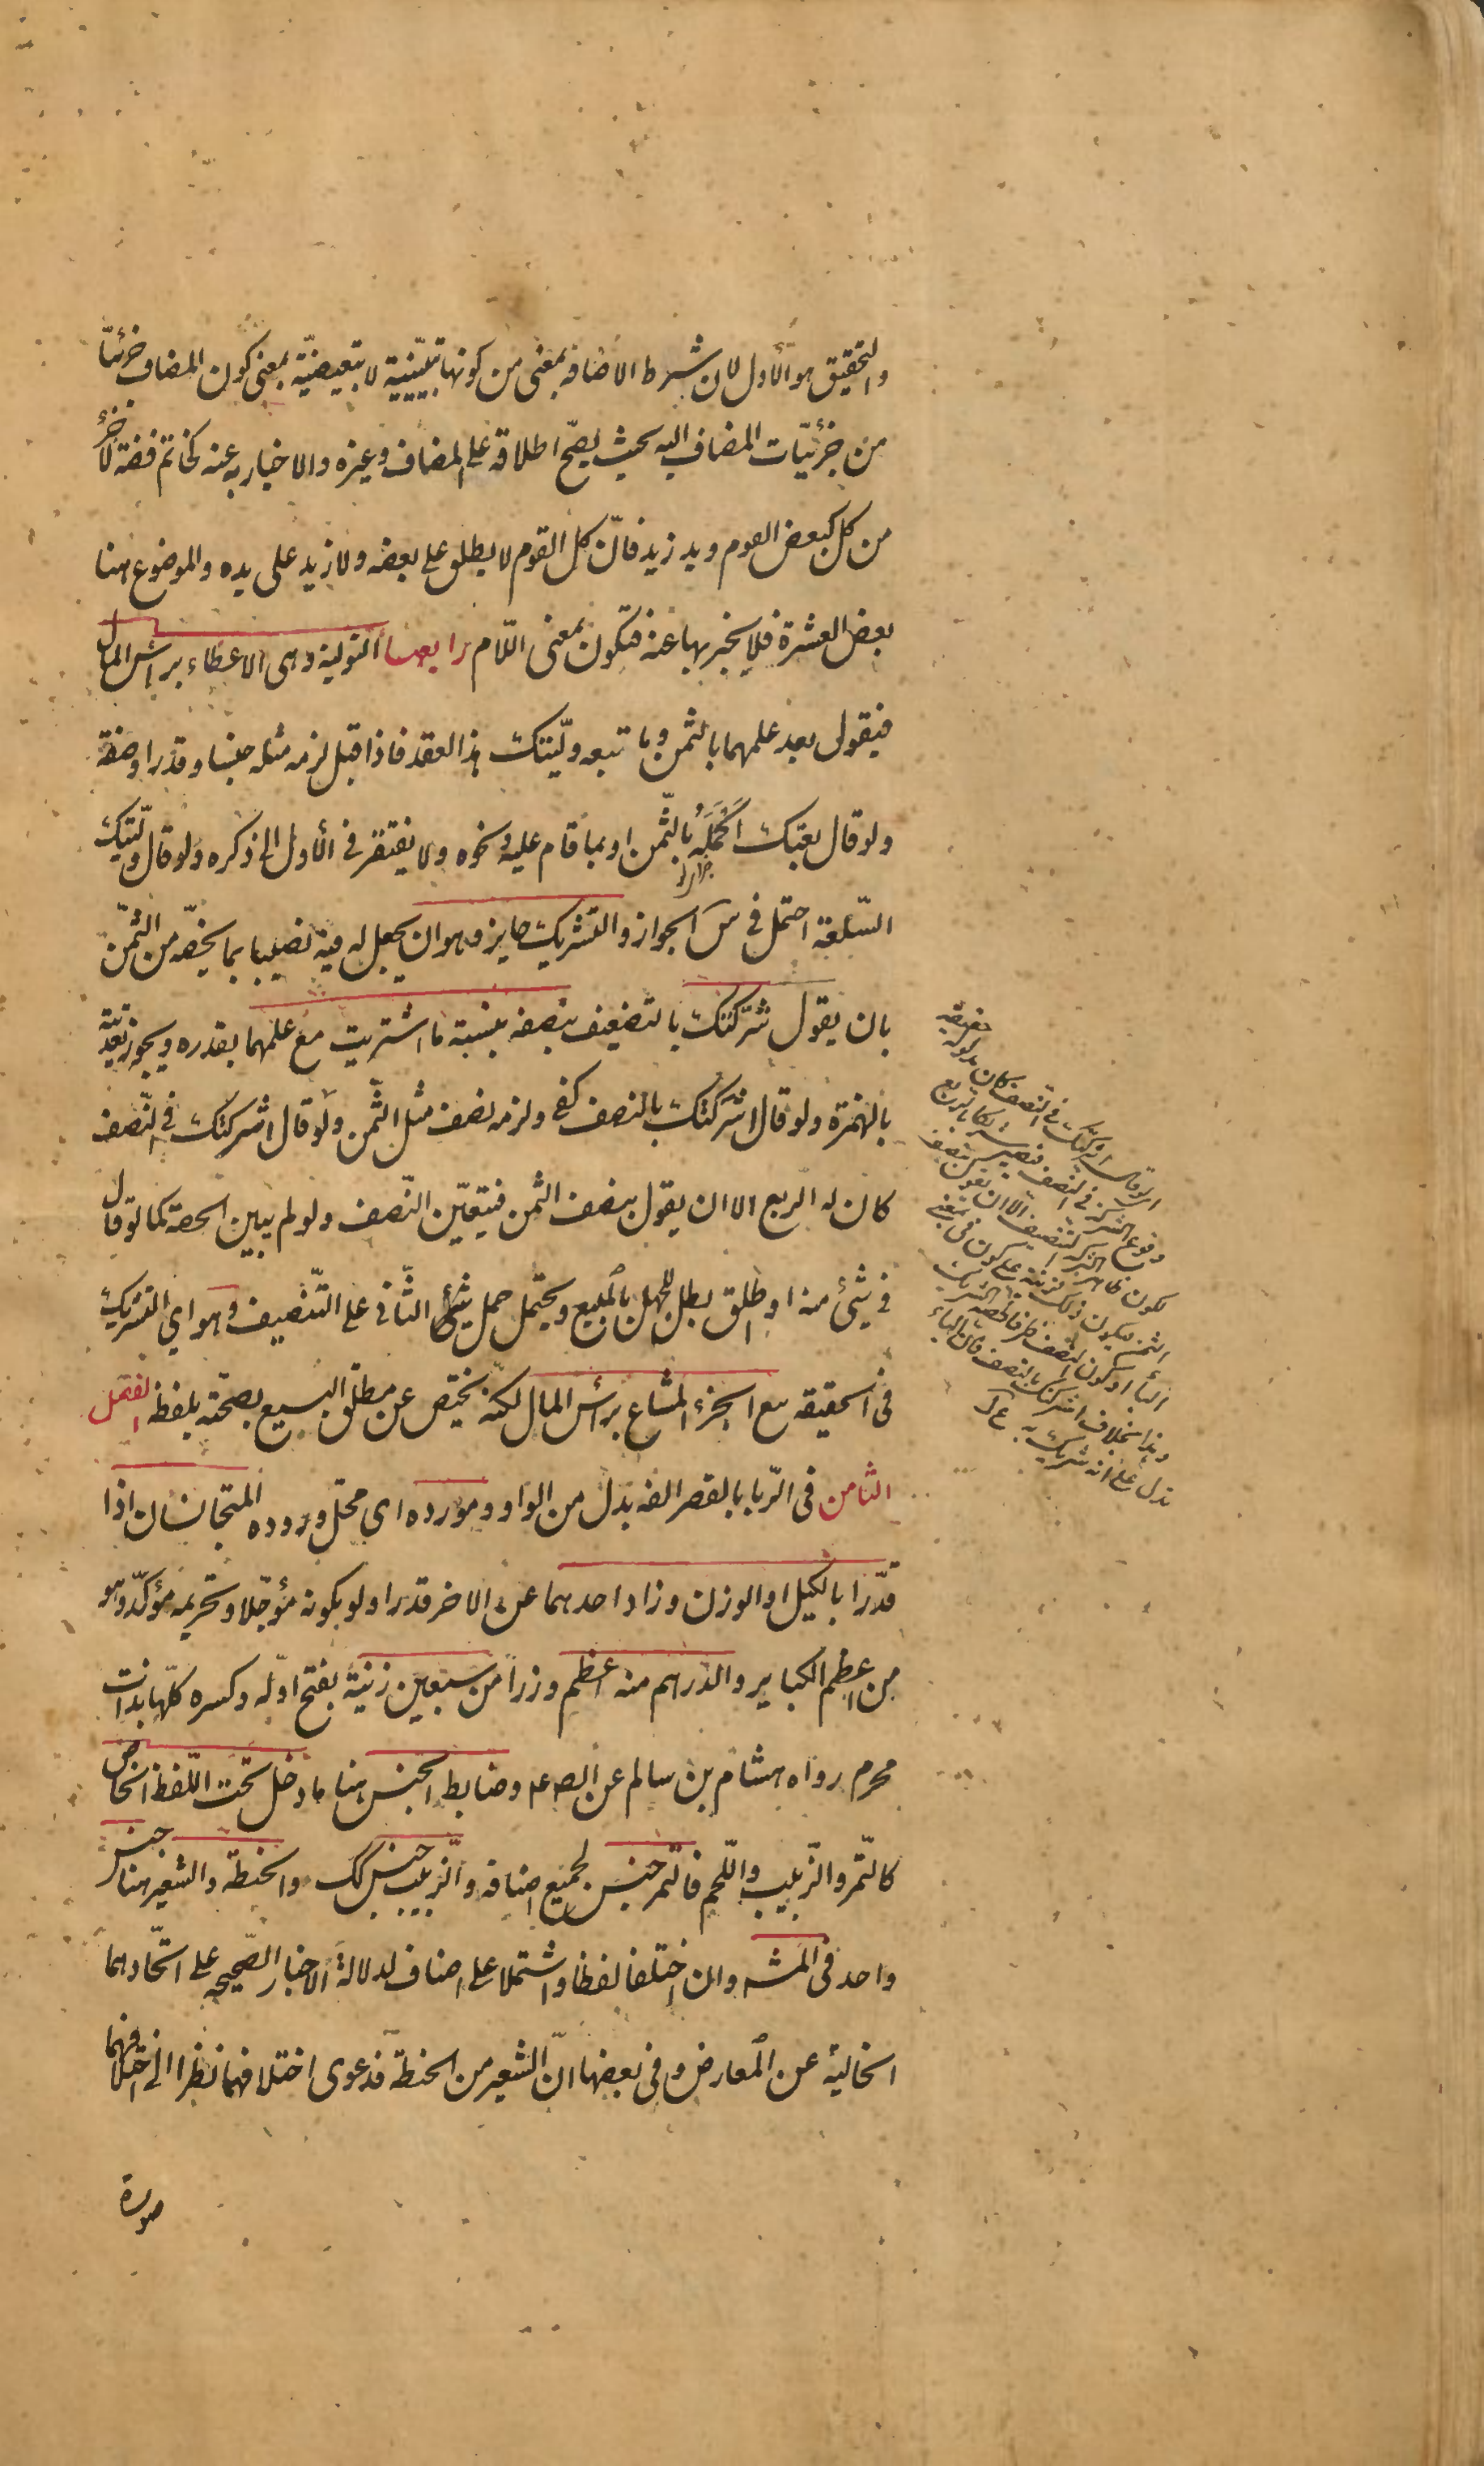 والتحقيق هو الأول لان شرط الاضافة بمعنى من كونها تبيينية لا تبعيضيّة بمعنى كون المضاف جزئيّا
من جزئيّات المضاف اليه بحيث يصحّ اطلاقه على المضاف وغيره والاخبار به عنه كخاتم فضة لا جزء
من كل كبعض القوم ويد زيد فانّ كل القوم لا يطلق على بعضه ولا زيد على يده والموضوع هنا
بعض العشرة فلا يخبر بها عنه فتكون بمعنى اللّام رابعها التولية وهى الاعطاء براس المال
فيقول بعد علمهما بالثمن وما تبعه ولّيتك هذا العقد فاذا قبل لزمه مثله جنسا وقدرا وصفة
ولو قال بعتك اكمله بالثّمن او بما قام عليه ونحوه ولا يفتقر في الأول الى ذكره ولو قال ولّيتك
السّلعة احتمل في س الجواز والتشريك جايز وهو ان يجعل له فيه نصيبا بما يخصّه من الثمّن
بان يقول شرّكتك بالتضعيف بنصفه بنسبة ما اشتريت مع علمهما بقدره ويجوز تعديته
بالهمزة ولو قال اشركتك بالنصف كفى ولزمه نصف مثل الثّمن ولو قال اشركتك في النّصف
كان له الربع الا ان يقول بنصف الثمن فيتعيّن النّصف ولو لم يبين الحصة كما لو قال
في شئ منه او اطلق بطل للجهل بالمبيع ويحتمل حمل الثّانى على التّنصيف وهو اى التشريك
فى الحقيقة بيع الجزء المشاع براس المال لكنّه يختص عن مطلق البيع بصحّته بلفظه الفصل
الثامن فى الرّبا بالقصر الفه بدل من الواو ومورده اى محلّ وروده المتجانسان اذا
قدّرا بالكيل او الوزن وزاد احدهما عن الاخر قدرا ولو بكونه مؤجّلا وتحريمه مؤكّد وهو
من اعظم الكباير والدرهم منه اعظم وزرا من سبعين زنية بفتح اوّله وكسره كلّها بذات
محرم رواه هشام بن سالم عن الص ع م وضابط الجنس هنا ما دخل تحت اللّفظ الخاصّ
كالتّمر والزّبيب واللّحم فالتّمر جنس لجميع اصنافه والزّبيب جنس كك والحنطة والشعير هنا جنس
واحد فى المشه وان اختلفا لفظا واشتملا على اصناف لدلالة الاخبار الصّحيحه على اتّحادهما
الخالية عن المعارض وفى بعضها انّ الشعير من الحنطة فدعوى اختلافهما نظرا الى اختلافهما
صورة